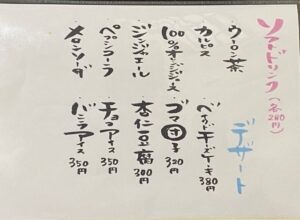 ソフトドリンク(各280円)
ウーロン茶
カルピス
100%オレンジジュース
ジンジャエール
ペプシコーラ
メロンソーダ
デザート
ベイクドチーズケーキ 380円
ゴマ団子 320円
杏仁豆腐 300円
チョコアイス 350円
バニラアイス 350円